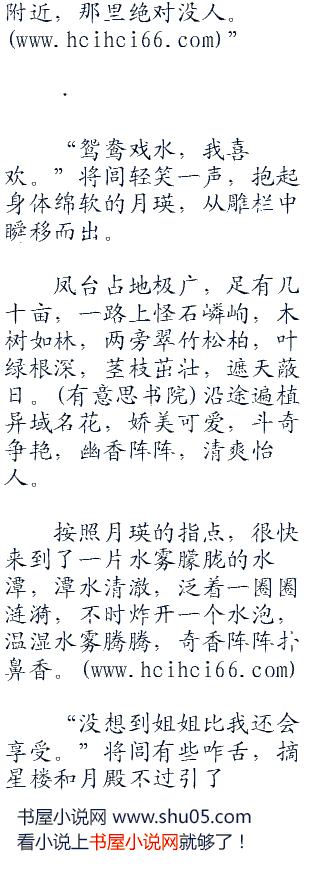 附近，那里绝对没人。
(www.hcihci66.com)”
.
“鸳鸯戏水，我喜
欢。”将闾轻笑一声，抱起
身体绵软的月瑛，从雕栏中
瞬移而出。
凤台占地极广，足有几
十亩，一路上怪石嶙峋，木
树如林，两旁翠竹松柏，叶
绿根深，茎枝茁壮，遮天蔽
日。(有意思书院)沿途遍植
异域名花，娇美可爱，斗奇
争艳，幽香阵阵，清爽怡
人。
按照月瑛的指点，很快
来到了一片水雾朦胧的水
潭，潭水清澈，泛着一圈圈
涟漪，不时炸开一个水泡，
温湿水雾腾腾，奇香阵阵扑
鼻香。(www.hcihci66.com)
“没想到姐姐比我还会
享受。”将闾有些咋舌，摘
星楼和月殿不过引了
书屋小说网 www.shu05.com
看小说上书屋小说网就够了！